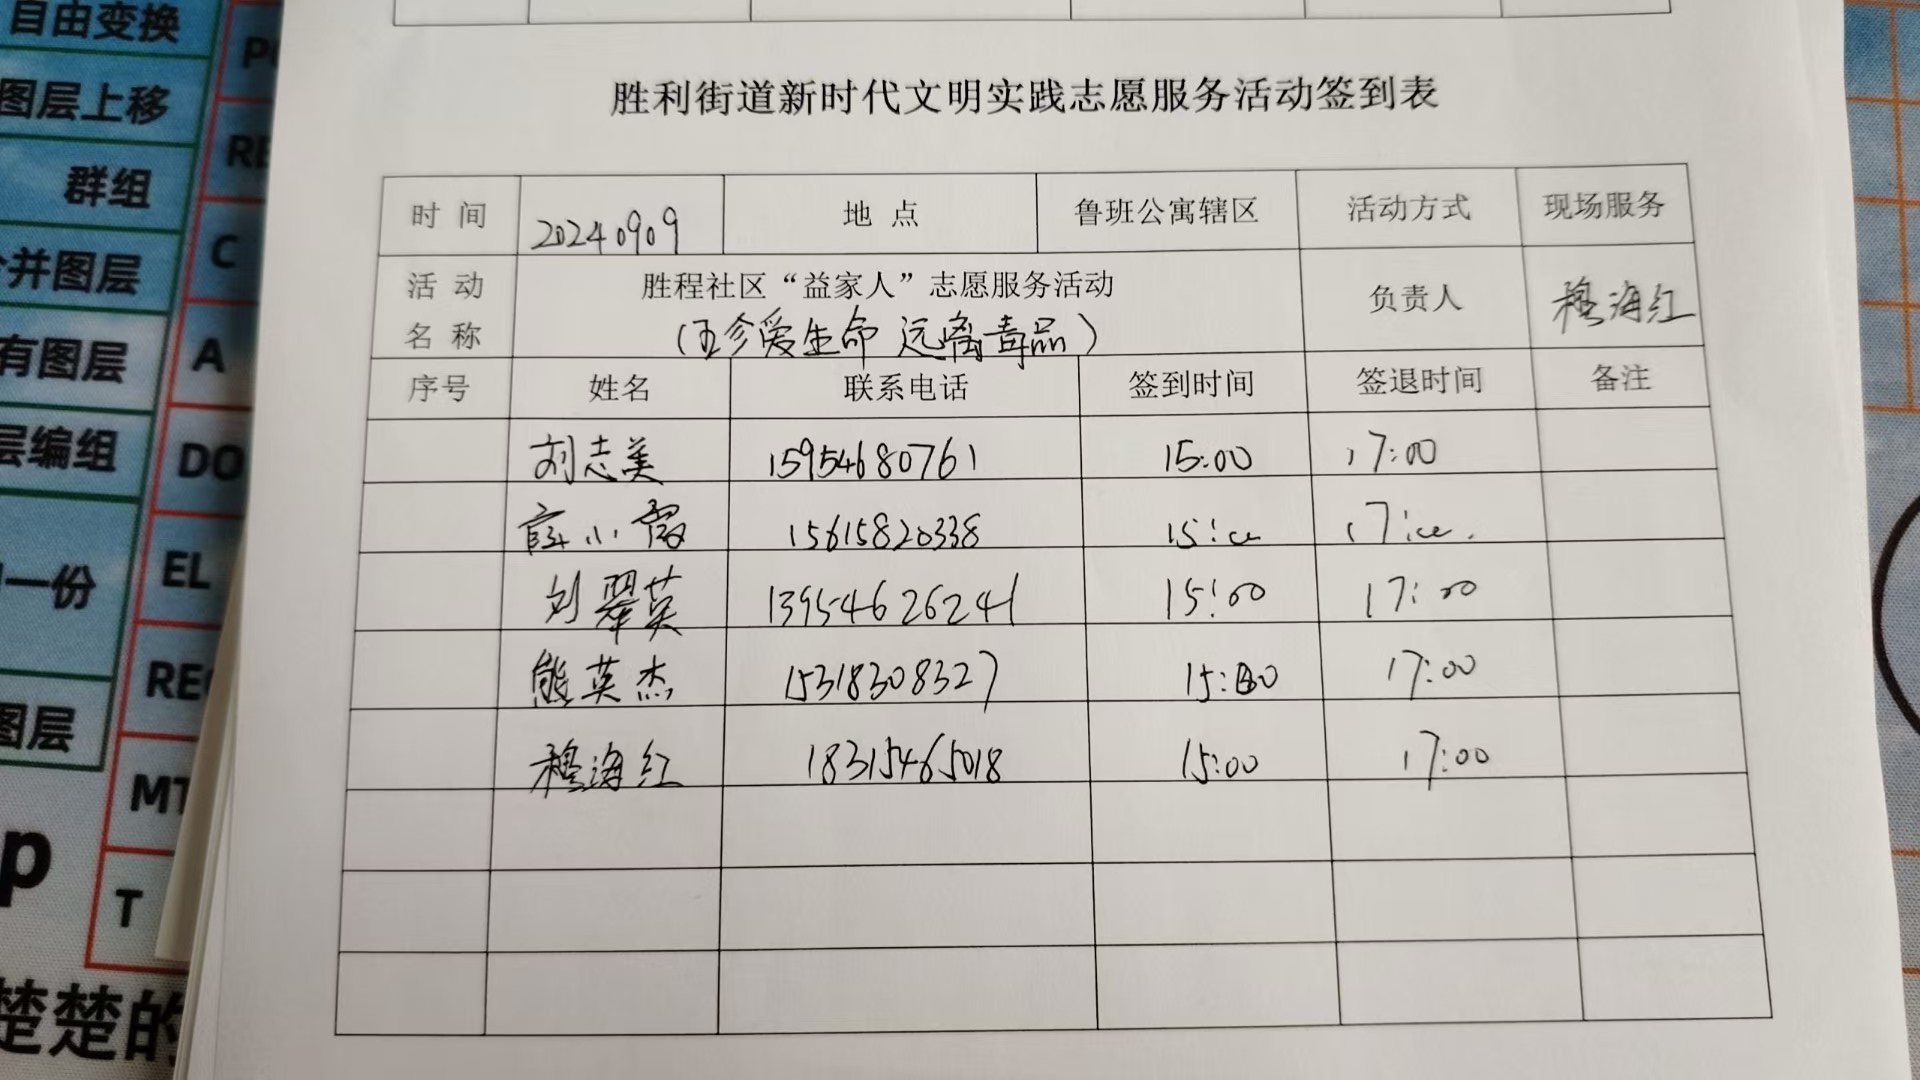 自由变换
图层上移
群组
并图层
有图层
层编组
一份
图层
p
楚楚的
RE
C
A
DO
EL
REC
MT
T
胜利街道新时代文明实践志愿服务活动签到表
时 间 20240909 地 点 鲁班公寓辖区 活动方式 现场服务
活 动 名 称 胜程社区“益家人”志愿服务活动 负责人 穆海红
(珍爱生命 远离毒品)
序号 姓名 联系电话 签到时间 签退时间 备注
刘志美 15954680761 15:00 17:00
薛小霞 15615820338 15:00 17:00.
刘翠英 13954626241 15:00 17:00
熊英杰 15318308327 15:00 17:00
穆海红 18315465018 15:00 17:00